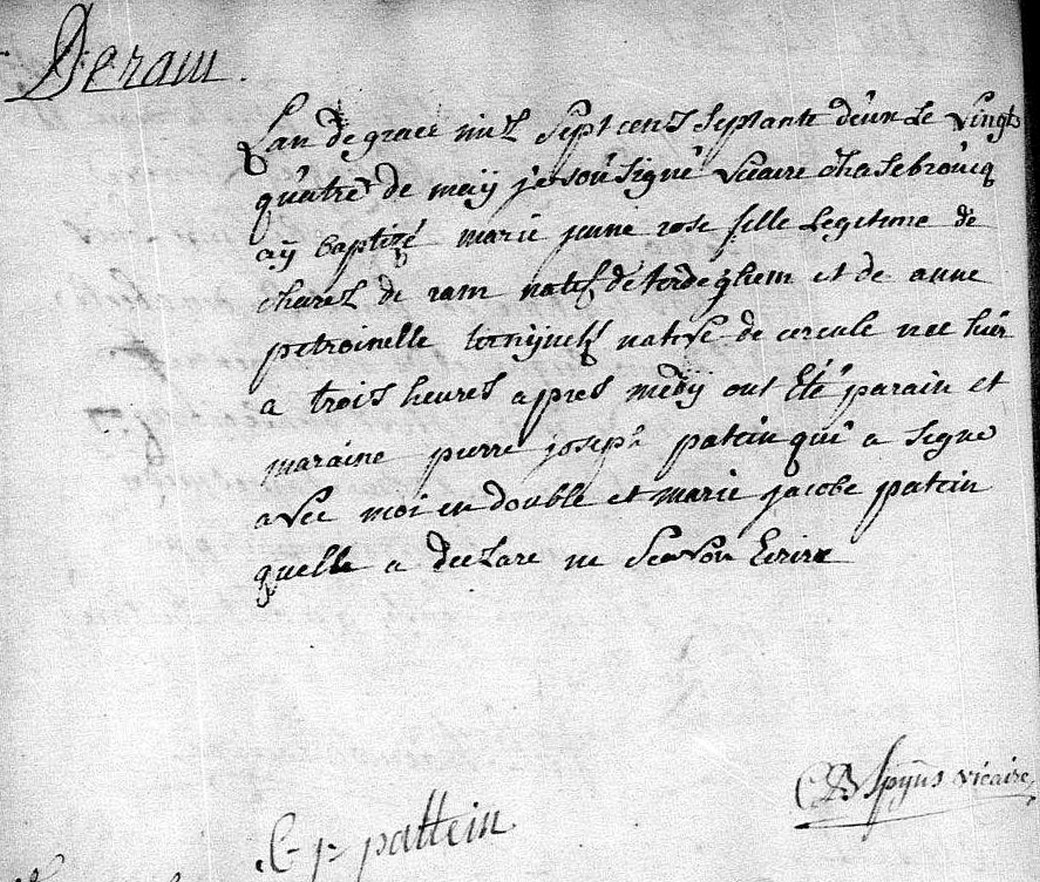 Deram
Lan de grace mil sept cens septante deux le vingt
quatre de maÿ je sousigné vicaire dhasebroucq
aÿ baptizé marie jenne rose fille legitime de
charel de ram natif de terdeghem et de anne
petroinelle native de nee hier
a trois heures apres medÿ ont Eté parain et
maraine pierre joseph patein qui a signe
avec moi en double et marie jacobe patein
quelle a declare ne scavoir Ecrire
Spÿns vicaire
pattein